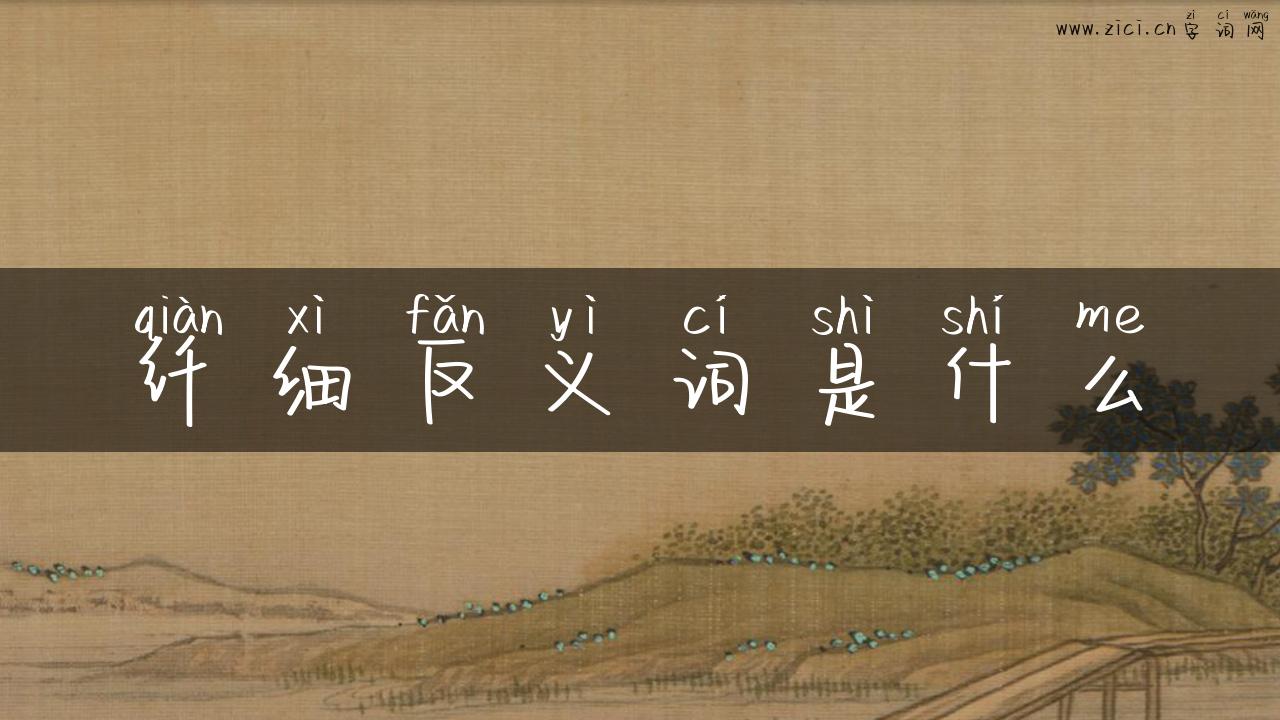 zì cí wǎng
www.zici.cn字词网
qiàn xì fǎn yì cí shì shí me
纤细反义词是什么